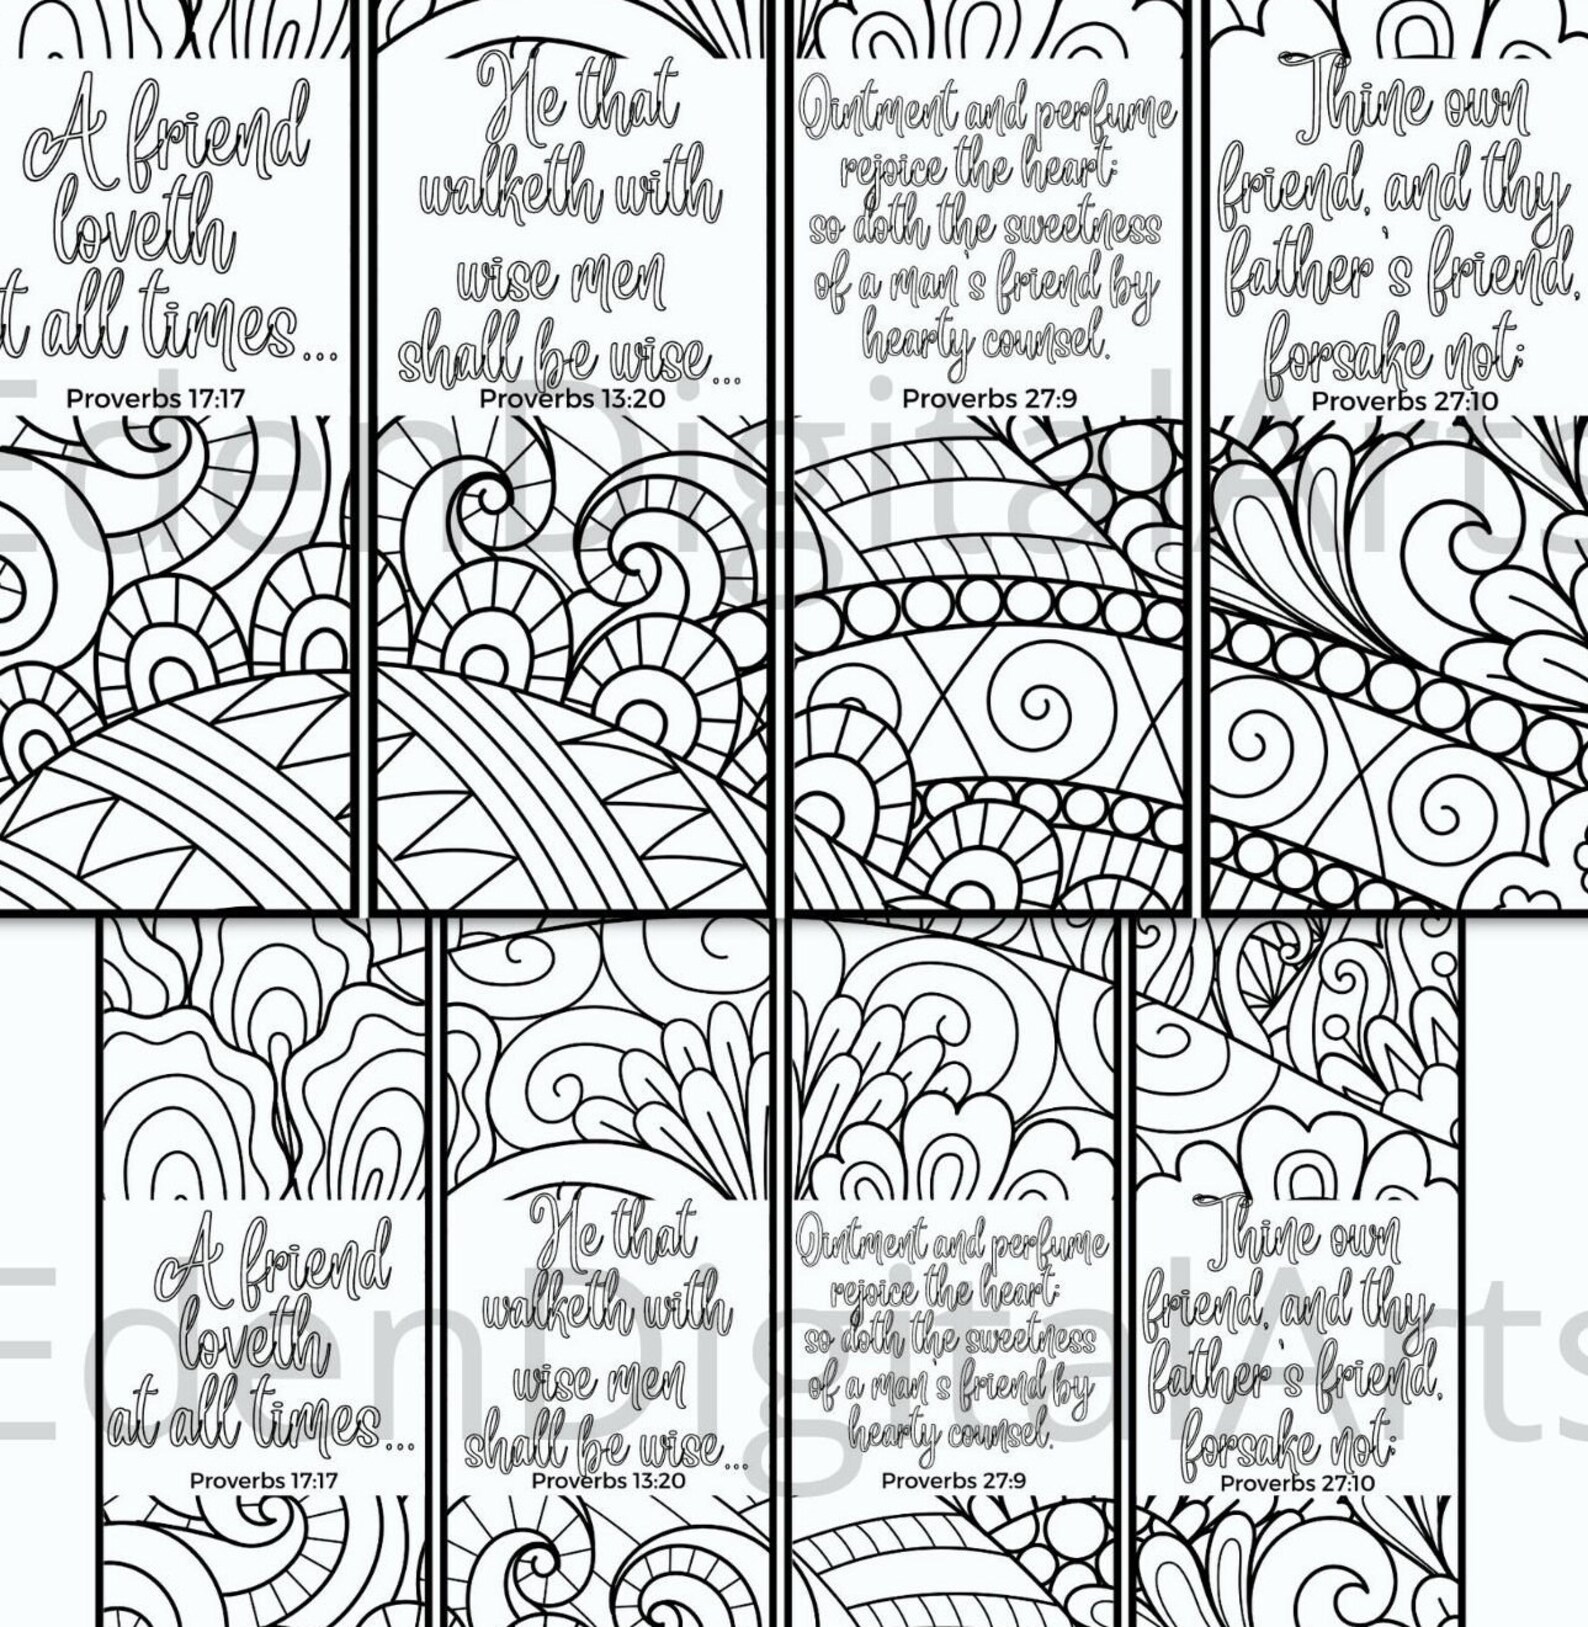 A friend
loveth
t all times...
Proverbs 17:17
He that
walketh with
wise men
shall be wise...
Proverbs 13:20
Ointment and perfume
rejoice the heart:
so doth the sweetness
of a man's friend by
hearty counsel.
Proverbs 27:9
Thine own
friend, and thy
father's friend,
forsake not;
Proverbs 27:10
EdenDigitalArts
A friend
loveth
at all times...
Proverbs 17:17
He that
walketh with
wise men
shall be wise...
Proverbs 13:20
Ointment and perfume
rejoice the heart:
so doth the sweetness
of a man's friend by
hearty counsel.
Proverbs 27:9
Thine own
friend, and thy
father's friend,
forsake not;
Proverbs 27:10
EdenDigitalArts